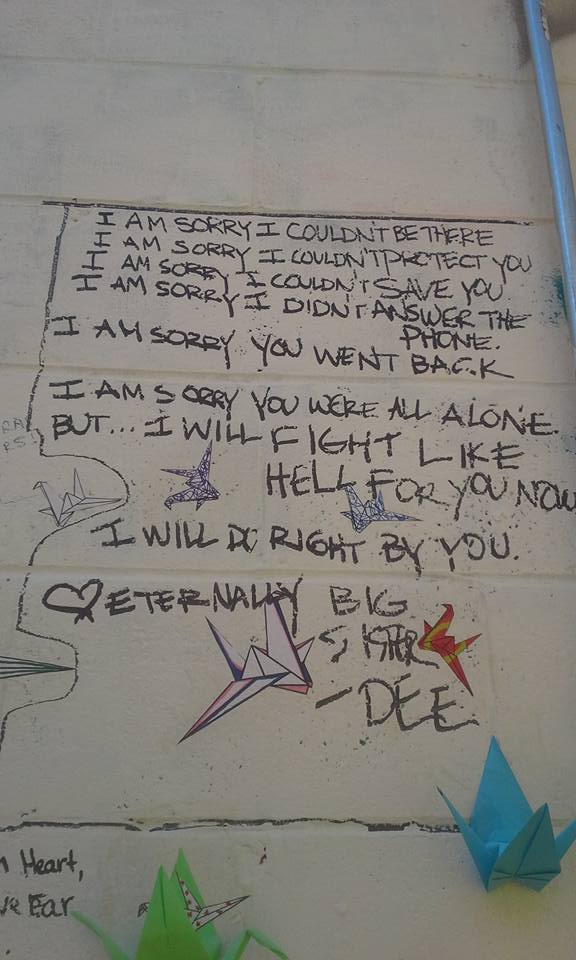 I AM SORRY I COULDN'T BE THERE
I AM SORRY I COULDN'T PROTECT YOU
I AM SORRY I COULDN'T SAVE YOU
I AM SORRY I DIDN'T ANSWER THE
PHONE.
I AM SORRY YOU WENT BACK
I AM SORRY YOU WERE ALL ALONE.
BUT... I WILL FIGHT LIKE
HELL FOR YOU NOW
I WILL DO RIGHT BY YOU.
♡ ETERNALLY BIG
SISTER
- DEE
Heart,
Ear